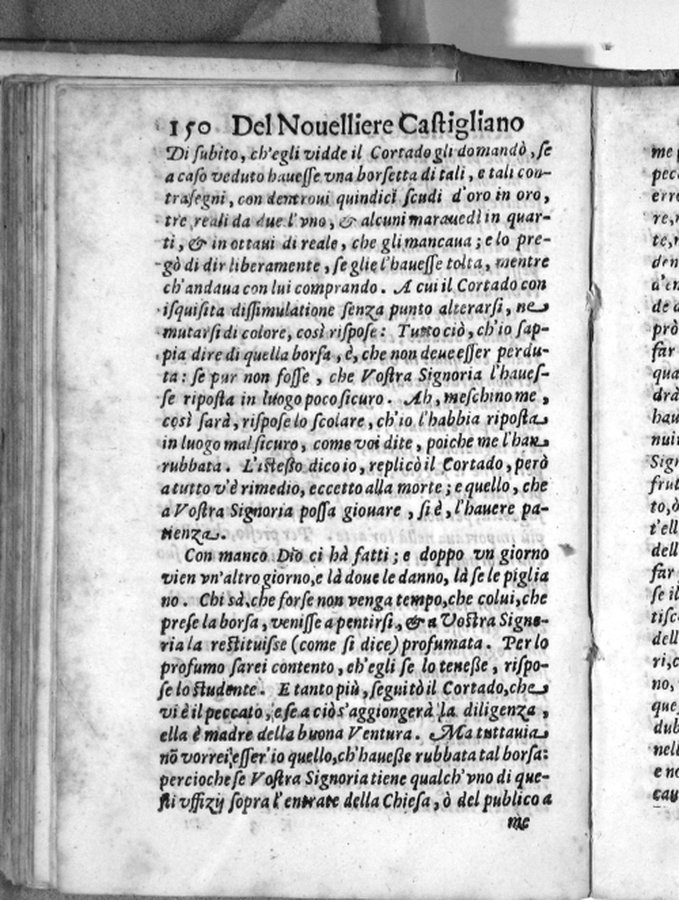 150 Del Nouelliere Castigliano
Di ſubito, ch'egli vidde il Cortado gli domandò, ſe
a caſo veduto haueſſe vna borſetta di tali, e tali con-
traſegni, con dentroui quindici ſcudi d'oro in oro,
tre reali da due l'vno, & alcuni marauedì in quar-
ti, & in ottaui di reale, che gli mancaua; e lo pre-
gò di dir liberamente, ſe glie l'haueſſe tolta, mentre
ch'andaua con lui comprando. A cui il Cortado con
iſquiſita diſſimulatione ſenza punto alterarſi, ne
mutarſi di colore, così riſpoſe: Tutto ciò, ch'io ſap-
pia dire di quella borſa, è, che non deue eſſer perdu-
ta: ſe pur non foſſe, che Voſtra Signoria l'haueſ-
ſe ripoſta in luogo poco ſicuro. Ah, meſchino me,
così ſarà, riſpoſe lo ſcolare, ch'io l'habbia ripoſta
in luogo mal ſicuro, come voi dite, poiche me l'han
rubbata. L'iſteßo dico io, replicò il Cortado, però
a tutto v'è rimedio, eccetto alla morte; e quello, che
a Voſtra Signoria poſſa giouare, ſi è, l'hauere pa-
tienza.
Con manco Dio ci hà fatti; e doppo vn giorno
vien vn'altro giorno, e là doue le danno, là ſe le piglia
no. Chi sà, che forſe non venga tempo, che colui, che
preſe la borſa, veniſſe a pentirſi, & a Voſtra Signo-
ria la reſtituiſse (come ſi dice) profumata. Per lo
profumo ſarei contento, ch'egli ſe lo teneße, riſpo-
ſe lo ſtudente. E tanto più, ſeguitò il Cortado, che
vi è il peccato, e ſe a ciò s'aggiongerà la diligenza,
ella è madre della buona Ventura. Ma tuttauia
nõ vorrei eſſer'io quello, ch'haueße rubbata tal borſa:
percioche ſe Voſtra Signoria tiene qualch'vno di que-
ſti vffizij ſopra l'entrate della Chieſa, ò del publico a
me